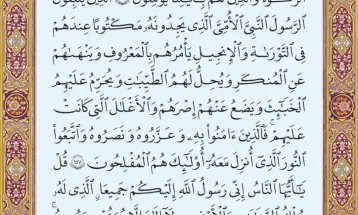 ٱلزَّكَوٰةَ وَٱلَّذِينَ هُم بِـَٔايَٰتِنَا يُؤْمِنُونَ ١٥٦ ٱلَّذِينَ يَتَّبِعُونَ
ٱلرَّسُولَ ٱلنَّبِيَّ ٱلْأُمِّيَّ ٱلَّذِى يَجِدُونَهُۥ مَكْتُوبًا عِندَهُمْ
فِى ٱلتَّوْرَىٰةِ وَٱلْإِنجِيلِ يَأْمُرُهُم بِٱلْمَعْرُوفِ وَيَنْهَىٰهُمْ
عَنِ ٱلْمُنكَرِ وَيُحِلُّ لَهُمُ ٱلطَّيِّبَٰتِ وَيُحَرِّمُ عَلَيْهِمُ
ٱلْخَبَٰٓئِثَ وَيَضَعُ عَنْهُمْ إِصْرَهُمْ وَٱلْأَغْلَٰلَ ٱلَّتِى كَانَتْ
عَلَيْهِمْ ۚ فَٱلَّذِينَ ءَامَنُوا۟ بِهِۦ وَعَزَّرُوهُ وَنَصَرُوهُ وَٱتَّبَعُوا۟
ٱلنُّورَ ٱلَّذِىٓ أُنزِلَ مَعَهُۥٓ ۙ أُو۟لَٰٓئِكَ هُمُ ٱلْمُفْلِحُونَ ١٥٧ قُلْ
يَٰٓأَيُّهَا ٱلنَّاسُ إِنِّى رَسُولُ ٱللَّهِ إِلَيْكُمْ جَمِيعًا ٱلَّذِى لَهُۥ